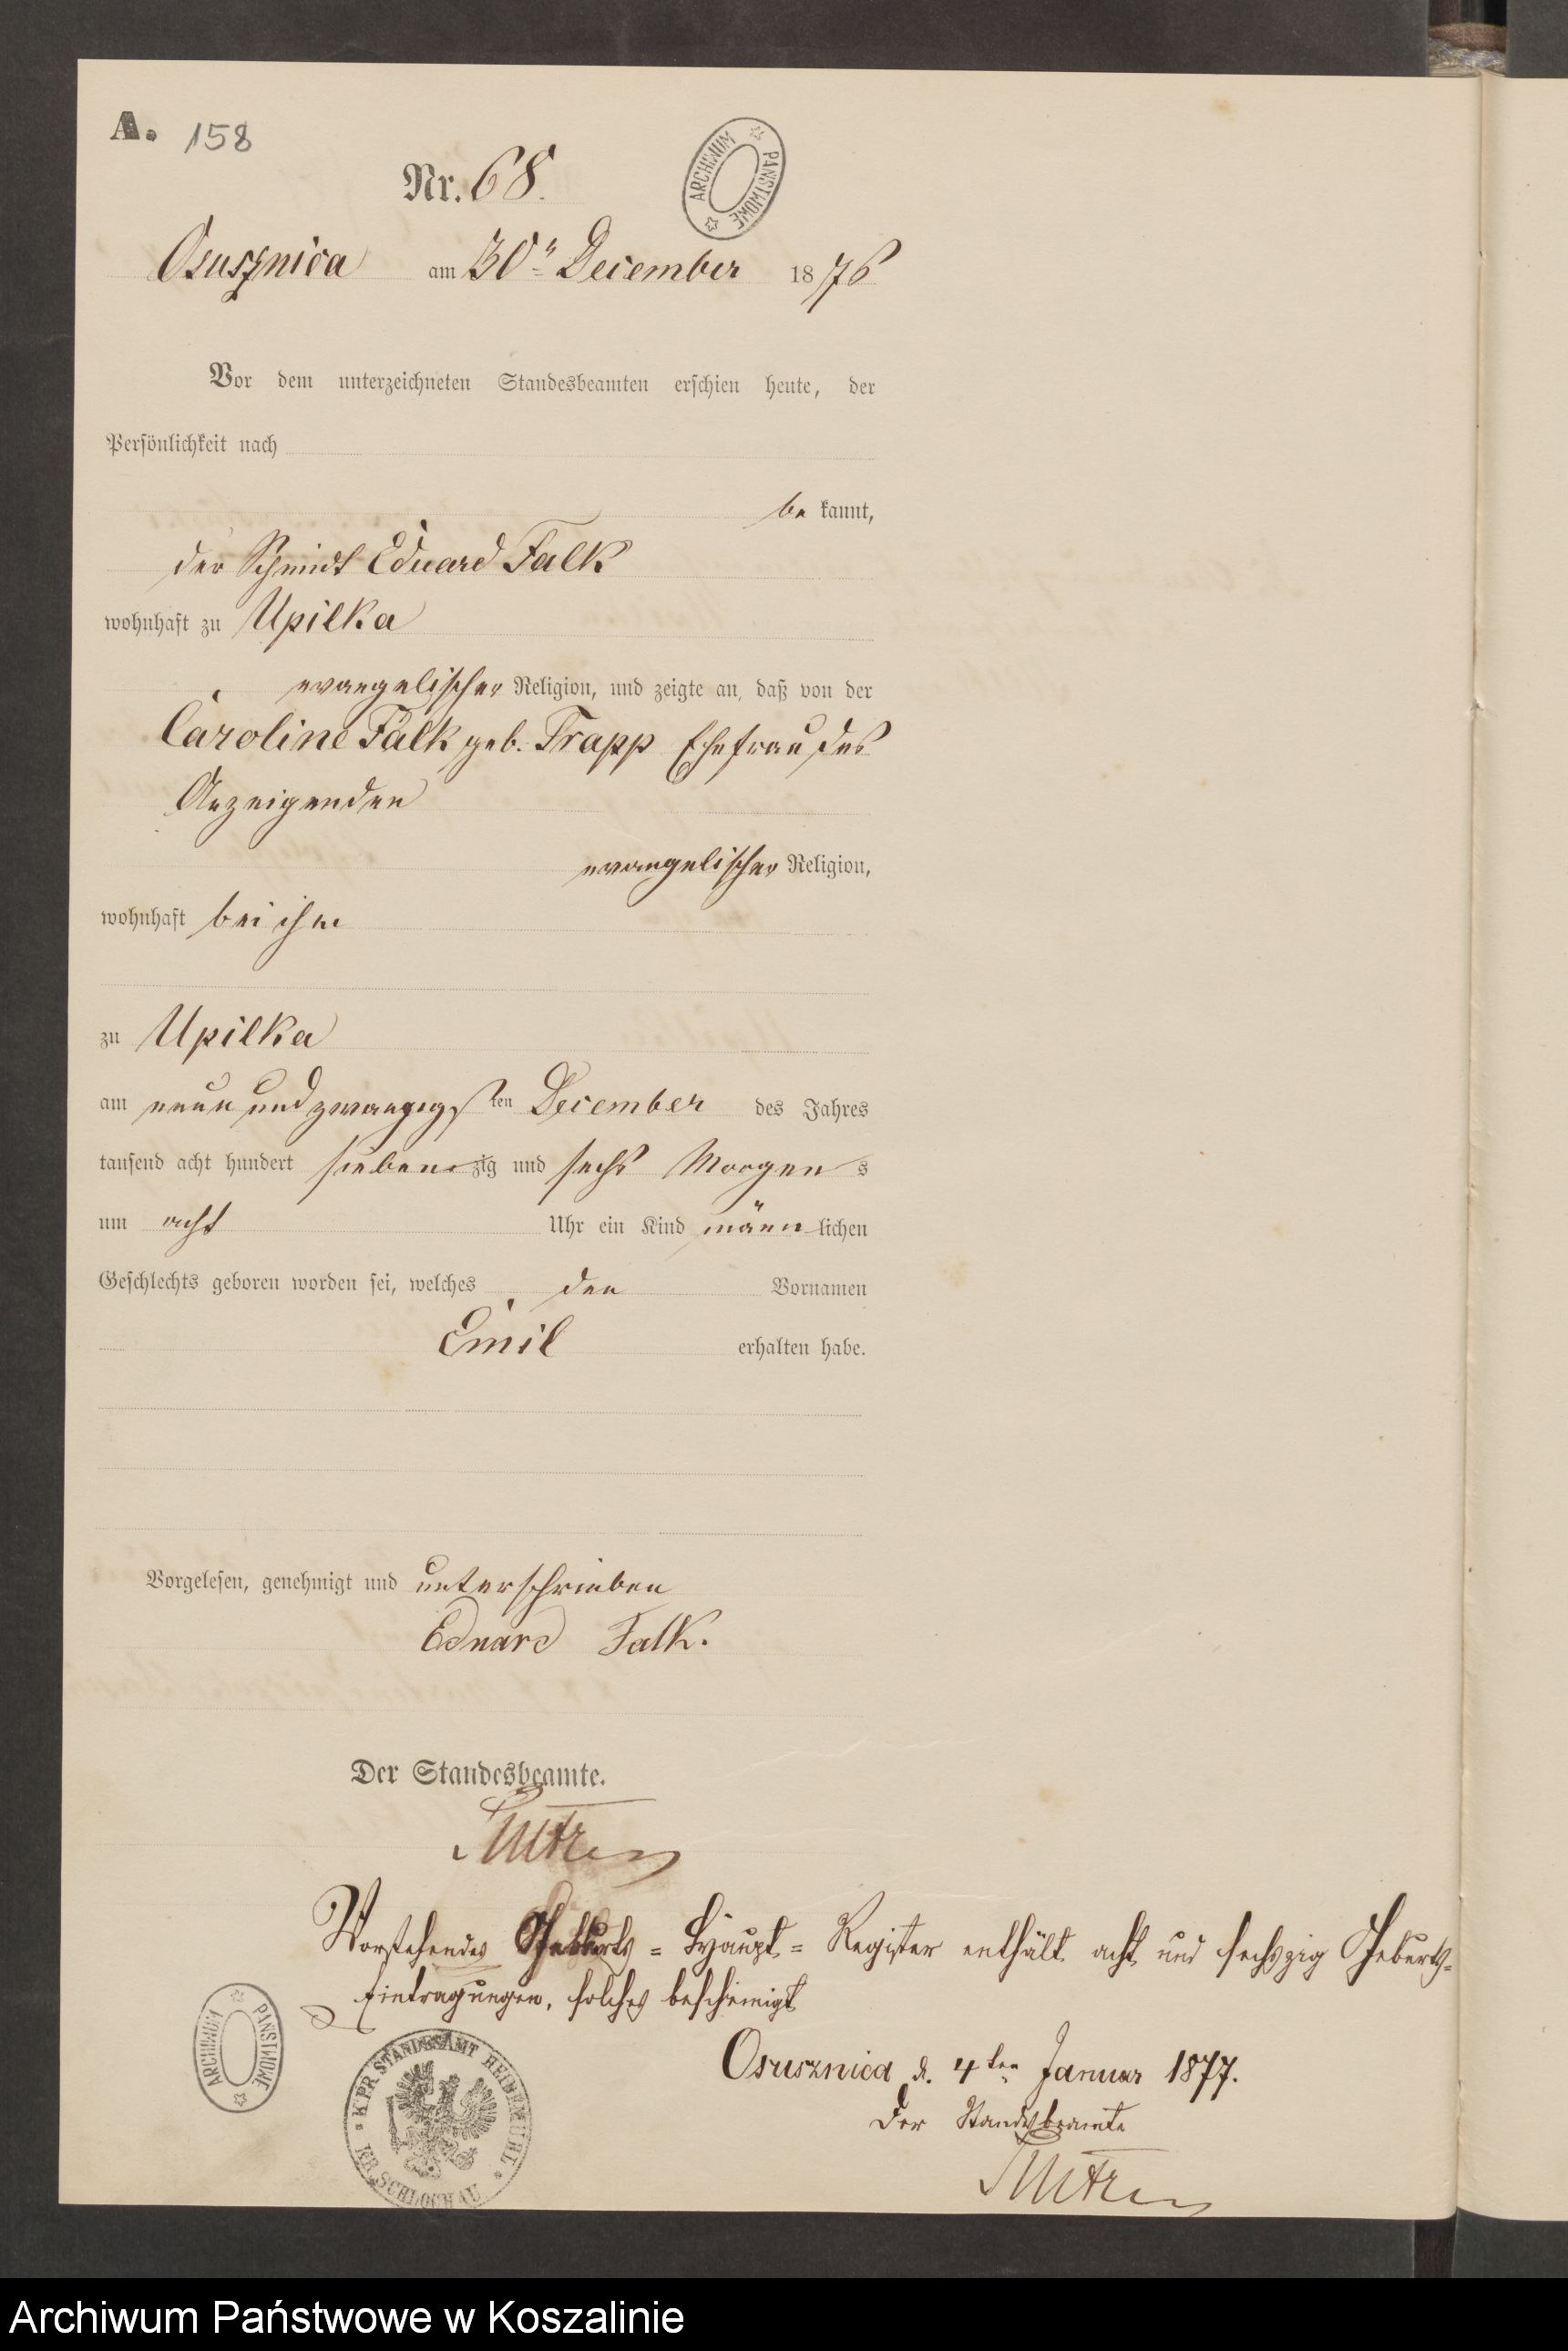 A. 158
Nr. 68.
ARCHIWUM PAŃSTWOWE
Osusznica am 30ⁿ December 1876
Vor dem unterzeichneten Standesbeamten erschien heute, der
Persönlichkeit nach
be kannt,
der Schmidt Eduard Falk
wohnhaft zu Upilka
evangelischer Religion, und zeigte an, daß von der
Caroline Falk geb. Trapp Ehefrau des
Anzeigenden
evangelischer Religion,
wohnhaft bei ihm
zu Upilka
am neun und zwanzigsten December des Jahres
tausend acht hundert siebenzig und sechs Morgens
um acht Uhr ein Kind männlichen
Geschlechts geboren worden sei, welches den Vornamen
Emil erhalten habe.
Vorgelesen, genehmigt und unterschrieben
Eduard Falk.
Der Standesbeamte.
Vorstehendes Geburts=Haupt=Register enthält acht und sechszig Geburts-
Eintragungen, solches bescheinigt
Osusznica d. 4ten Januar 1877.
Der Standesbeamte
ARCHIWUM PAŃSTWOWE
K.PR. STANDESAMT HEIDEMÜHL
KR. SCHLOCHAU
Archiwum Państwowe w Koszalinie